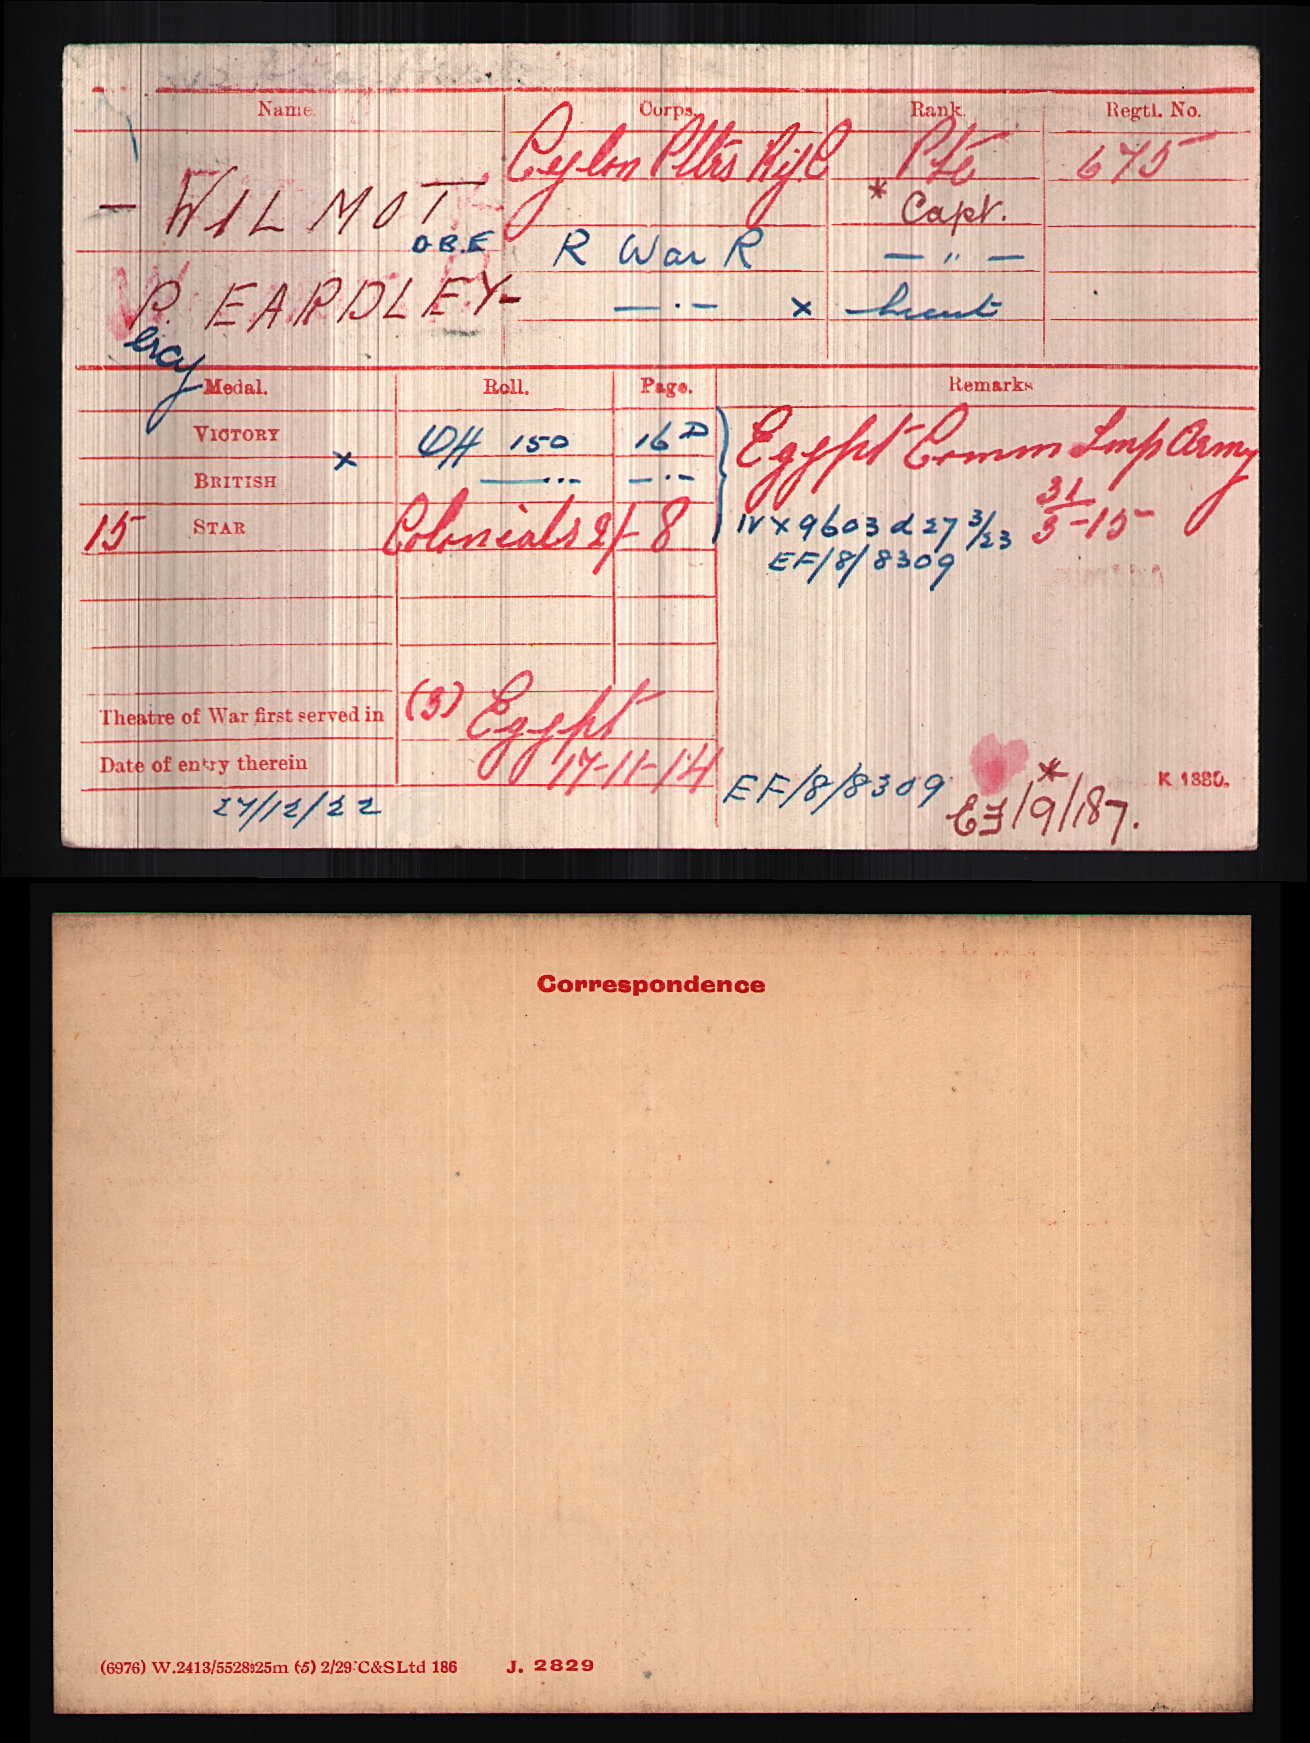 Name. Corps. Rank. Regtl. No.
Ceylon Pltrs Rif C Pte 675
- WILMOT O.B.E * Capt.
R War R - " -
P. EARDLEY- - . - x Lieut
ercy
Medal. Roll. Page. Remarks
VICTORY OH 150 16 D Egypt Comm Imp Army
x
BRITISH —... - . - 31
15 STAR Colonials 2/ 8 IV X 9603 d 27 3/23 3-15
EF/8/8309
Theatre of War first served in (3) Egypt
Date of entry therein 17-11-14
27/12/22 EF/8/8309 * K 1380.
EF/9/187.
Correspondence
(6976) W.2413/5528 25m (5) 2/29 C&S Ltd 186 J. 2829